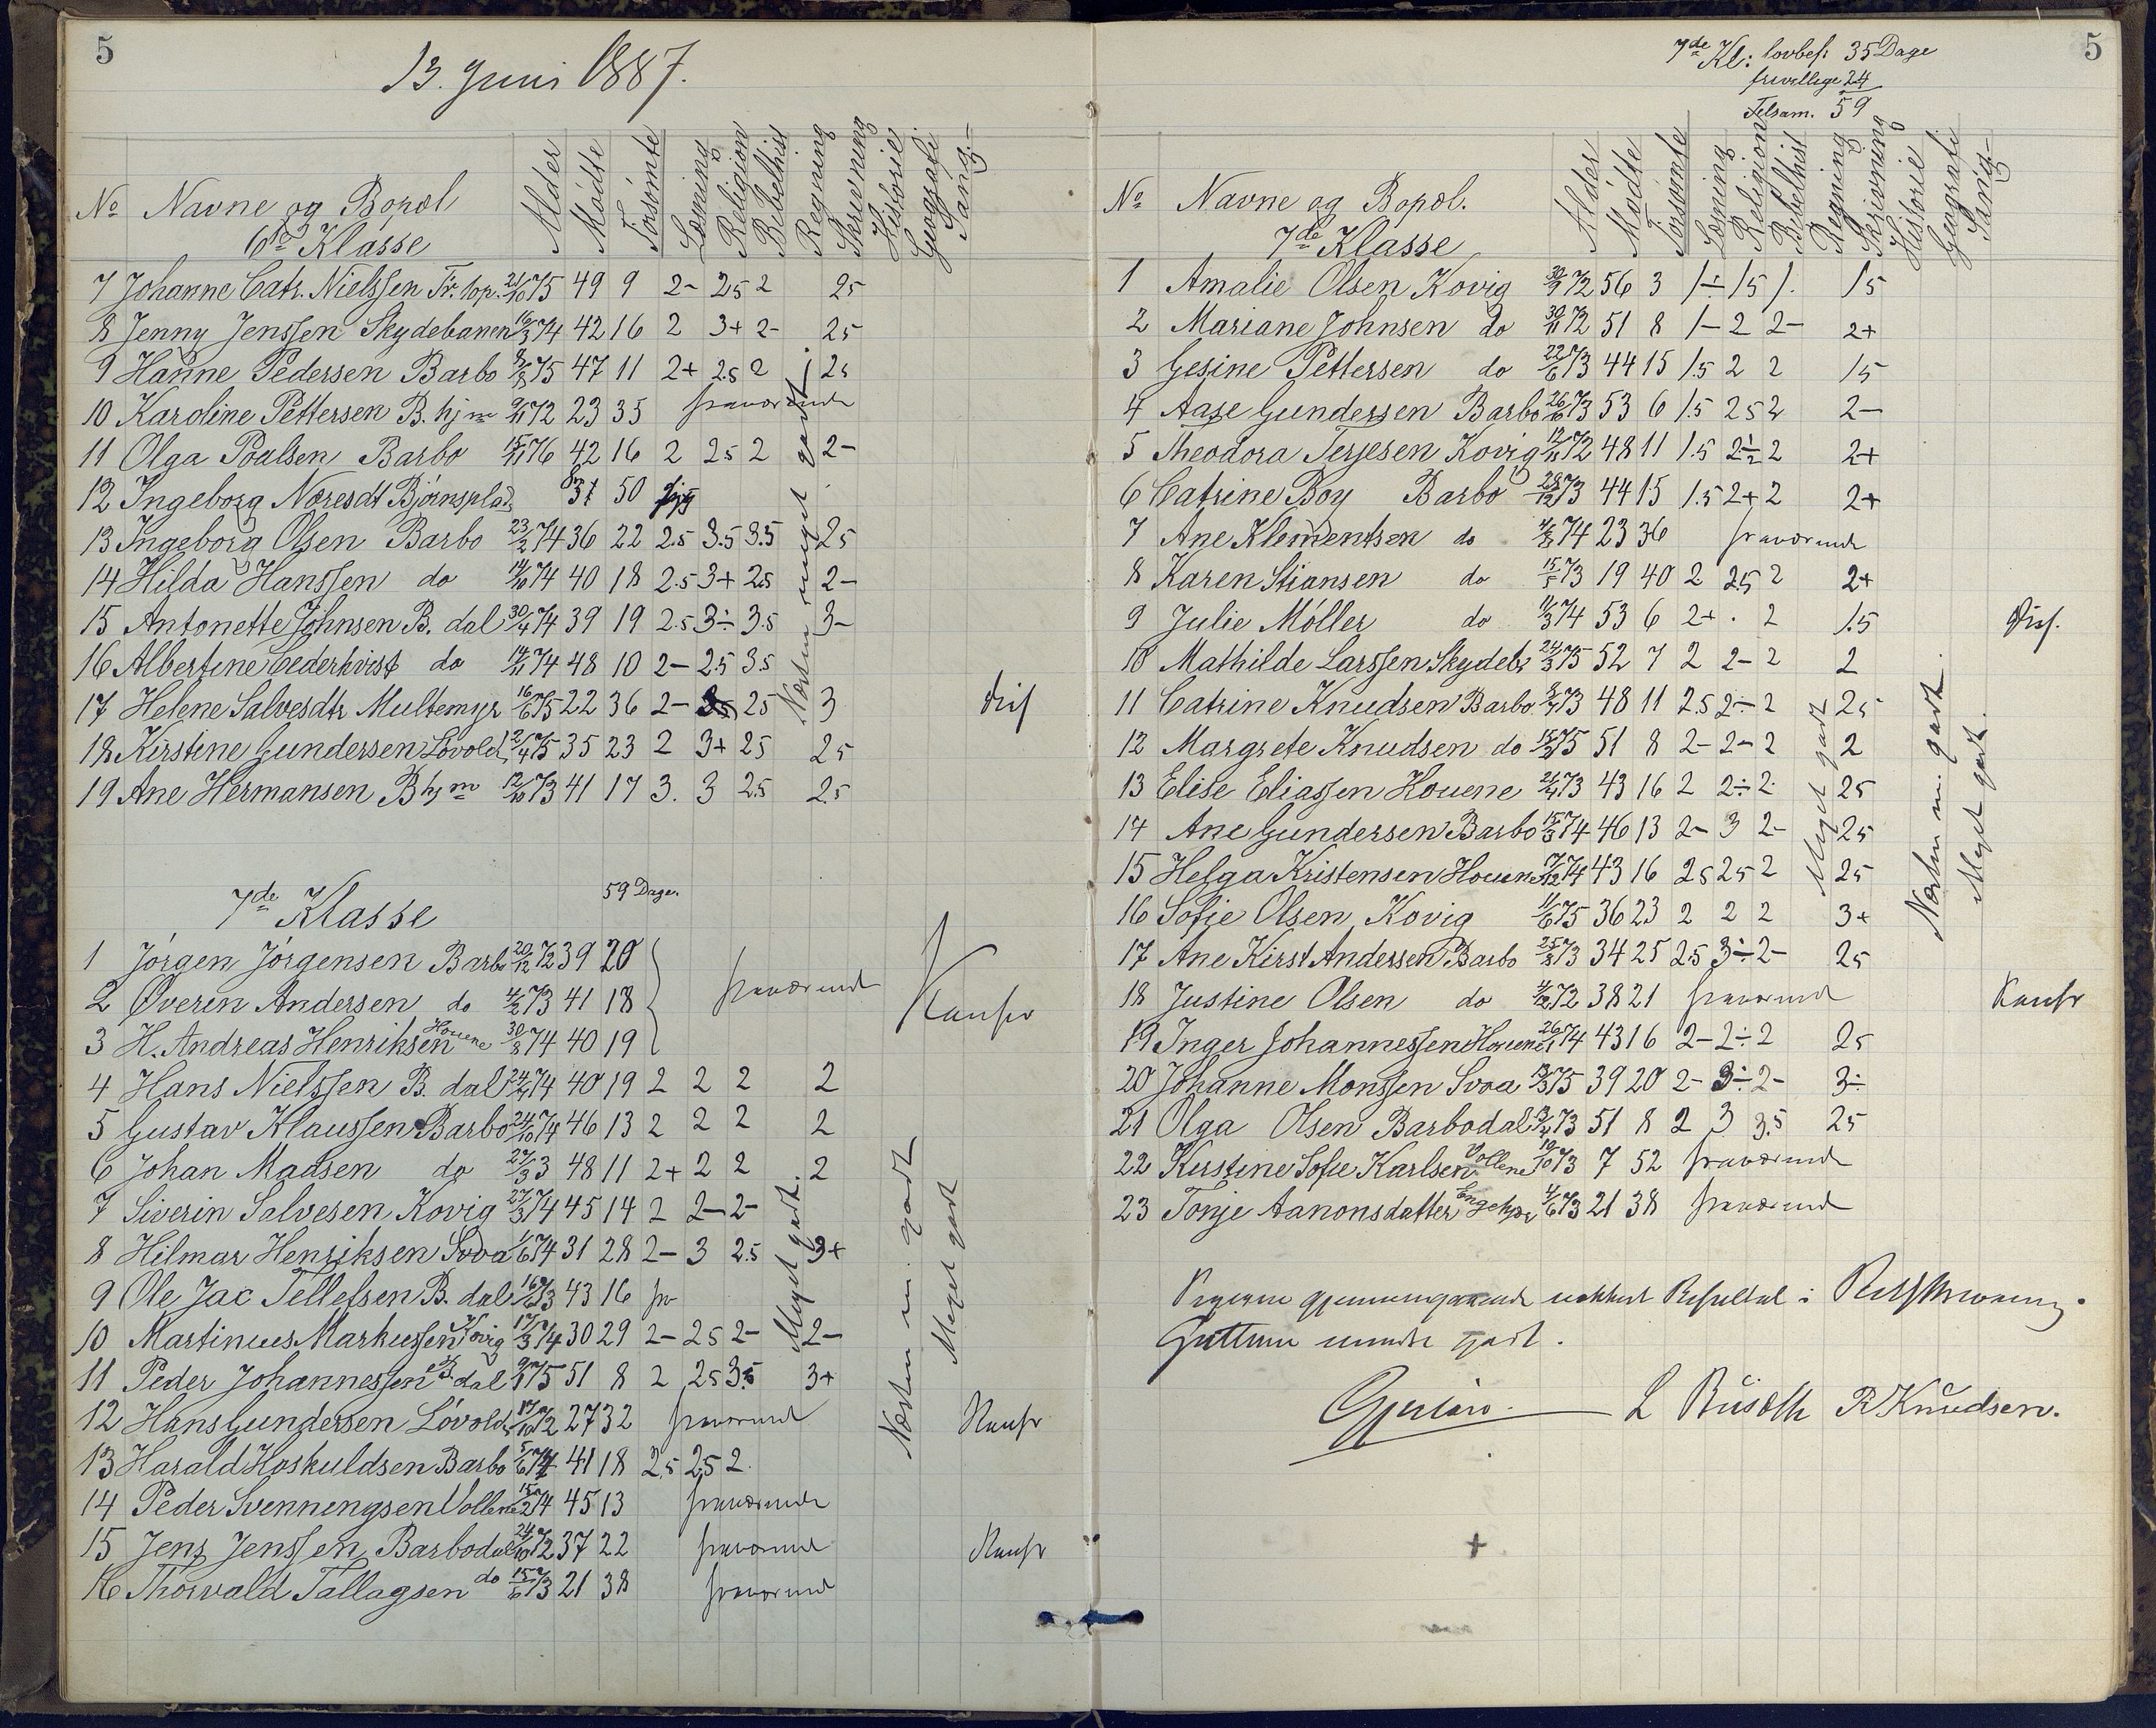 5
13. Juni 1887.
No Navne og Bopæl Alder Mødte Forsømte Læsning Religion Bibelhist Regning Skrivning Historie Geografi Sang.
6te Klasse
7 Johanne Catr. Nielssen 21/10 75 49 9 2- 25 2 25
8 Jenny Jenssen Skydebanen 16/3 74 42 16 2 3+ 2- 25
9 Hanne Pedersen Barbo 8/8 75 47 11 2+ 2.5 2 25
10 Karoline Pettersen B. hjm 9/11 72 23 35 fraværende
11 Olga Poulsen Barbo 15/11 76 42 16 2 25 2 2-
12 Ingeborg Næresdt Bjørnsplads 37 50
13 Ingeborg Olsen Barbo 23/2 74 36 22 2.5 3.5 3.5 25
14 Hilda Hanssen do 14/10 74 40 18 2.5 3+ 2.5 2-
15 Antonette Johnsen B. dal 30/4 74 39 19 2.5 3÷ 3.5 3-
16 Albertine Cederkvist do 14/11 74 48 10 2- 2.5 3.5
17 Helene Salvesdtr Multemyr 16/6 75 22 36 2- 25 3
18 Kirstine Gundersen Løvold 2/4 75 35 23 2 3+ 25 25
19 Ane Hermansen B hjm 12/10 73 41 17 3. 3 2.5 2.5
Næsten meget godt
7de Klasse 59 Dage.
1 Jørgen Jørgensen Barbo 20/12 72 39 20
2 Øveren Andersen do 4/2 73 41 18 fraværende Konfir
3 H. Andreas Henriksen Houene 30/8 74 40 19
4 Hans Nielssen B. dal 24/4 74 40 19 2 2 2 2
5 Gustav Klaussen Barbo 24/10 74 46 13 2 2 2 2
6 Johan Madsen do 27/3 3 48 11 2+ 2 2 2
7 Siverin Salvesen Kovig 27/3 74 45 14 2 2- 2-
8 Hilmar Henriksen Svoa 1/6 74 31 28 2- 3 2.5 3+
9 Ole Jac Tellefsen B. dal 16/6 73 43 16 fr
10 Martinius Markussen Kovig 17/3 74 30 29 2- 25 2- 2-
11 Peder Johannessen B. dal 9/1 75 51 8 2 25 3.5 3+
12 Hans Gundersen Løvold 27 32 fraværende Konfir
13 Harald Hoskuldsen Barbo 5/6 74 41 18 2.5 2.5 2
14 Peder Svenningsen Vollene 15/2 74 45 13 fraværende
15 Jens Jenssen Barbodal 24/10 72 37 22 fraværende Konfir
16 Thorvald Tallagsen do 15/6 73 21 38 fraværende
Meget godt.
Næsten m. godt
Meget godt
5
7de Kl: lovbef: 35 Dage
frivillige 24
Tilsam. 59
No Navne og Bopæl. Alder Mødte Forsømte Læsning Religion Bibelhist Regning Skrivning Historie Geografi Sang-
7de Klasse
1 Amalie Olsen Kovig 30/9 72 56 3 1÷ 15 1. 15
2 Mariane Johnsen do 30/11 72 51 8 1- 2 2- 2+
3 Gesine Pettersen do 22/6 73 44 15 1.5 2 2 15
4 Aase Gundersen Barbo 26/6 73 53 6 1.5 25 2 2-
5 Theodora Terjesen Kovig 12/11 72 48 11 1.5 2÷ 2 2+
6 Catrine Boy Barbo 28/12 73 44 15 1.5 2+ 2 2+
7 Ane Klementsen do 4/8 74 23 36 fraværende
8 Karen Stiansen do 15/5 73 19 40 2 2.5 2 2+
9 Julie Møller do 11/3 74 53 6 2+ . 2 1.5
10 Mathilde Larssen Skydeb 24/3 75 52 7 2 2- 2 2
11 Catrine Knudsen Barbo 8/7 73 48 11 2.5 2÷ 2 25
12 Margrete Knudsen do 75 51 8 2- 2- 2 2
13 Elise Eliassen Houene 21/4 73 43 16 2 2÷ 2 25
14 Ane Gundersen Barbo 15/3 74 46 13 2- 3 2- 25
15 Helga Kristensen Houene 7/12 74 43 16 25 25 2 25
16 Sofie Olsen Kovig 11/6 75 36 23 2 2 2 3+
17 Ane Kirst Andersen Barbo 25/8 73 34 25 2.5 3÷ 2- 25
18 Justine Olsen do 4/12 72 38 21 fraværende Konfir
19 Inger Johannessen Houene 26/1 74 43 16 2- 2÷ 2 25
20 Johanne Monssen Svoa 19/3 75 39 20 2- 3÷ 2- 3÷
21 Olga Olsen Barbodal 13/4 73 51 8 2 3 3.5 25
22 Kirstine Sofie Karlsen Vollene 19/10 73 7 52 fraværende
23 Tonje Aanonsdatter 4/6 73 21 38 fraværende
Meget godt
Næsten m. godt.
Meget godt.
Pigerne gjennemgaaende Resultat i Retskrivning.
Guttene mindre godt.
L Busæth R Knudsen.